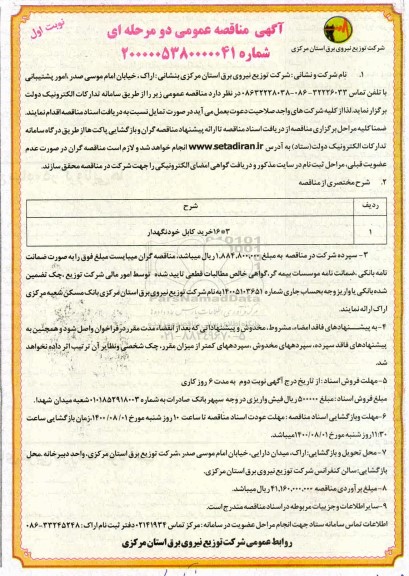 نوبت اول
آگهی مناقصه عمومی دو مرحله ای
شماره ۲۰۰۰۰۰۵۳۸۰۰۰۰۰۴۱
شرکت توزیع نیروی برق استان مرکزی
۱. نام شرکت و نشانی : شرکت توزیع نیروی برق استان مرکزی بنشانی : اراک ، خیابان امام موسی صدر ، امور پشتیبانی
با تلفن تماس ۳۲۲۲۶۰۳۳-۰۸۶ - ۰۸۶۳۲۲۲۸۰۳۸ در نظر دارد مناقصه عمومی زیر را از طریق سامانه تدارکات الکترونیک دولت
برگزار نماید. لذا از کلیه شرکت های واجد صلاحیت دعوت بعمل می آید در صورت تمایل نسبت به دریافت اسناد مناقصه اقدام نمایند.
ضمنا کلیه مراحل برگزاری مناقصه از دریافت اسناد مناقصه تا ارائه پیشنهاد مناقصه گران و بازگشایی پاکت ها از طریق درگاه سامانه
تدارکات الکترونیک دولت (ستاد) به آدرس www.setadiran.ir انجام خواهد شد و لازم است مناقصه گران در صورت عدم
عضویت قبلی، مراحل ثبت نام در سایت مذکور و دریافت گواهی امضای الکترونیکی را جهت شرکت در مناقصه محقق سازند.
۲. شرح مختصری از مناقصه
ردیف شرح
۱ خرید کابل خودنگهدار ۳*۱۶
۳- سپرده شرکت در مناقصه به مبلغ ۱،۸۸۴،۸۰۰،۰۰۰ ریال میباشد، مناقصه گران میبایست مبلغ فوق را به صورت ضمانت
نامه بانکی ، ضمانت نامه موسسات بیمه گر، گواهی خالص مطالبات قطعی تایید شده توسط امور مالی شرکت توزیع ، چک تضمین
شده بانکی یا واریز وجه بحساب جاری شماره ۱۴۰۰۵۱۰۳۶۵۱ به نام شرکت توزیع نیروی برق استان مرکزی بانک مسکن شعبه مرکزی
اراک ارائه نمایند.
۴- به پیشنهادهای فاقد امضاء، مشروط، مخدوش و پیشنهاداتی که بعد از انقضاء مدت مقرر در فراخوان واصل شود و همچنین به
پیشنهادهای فاقد سپرده، سپردههای مخدوش ، سپردههای کمتر از میزان مقرر، چک شخصی و نظایر آن ترتیب اثر داده نخواهد
شد.
۵- مهلت فروش اسناد : از تاریخ درج آگهی نوبت دوم به مدت ۶ روز کاری
مبلغ فروش اسناد : مبلغ ۵۰۰۰۰۰ ریال فیش واریزی در وجه سپهر بانک صادرات به شماره ۰۱۰۱۸۵۲۹۱۸۰۰۳ شعبه میدان شهدا.
۶- مهلت وبازگشایی اسناد مناقصه : مهلت عودت اسناد مناقصه تا ساعت ۱۰ روز شنبه مورخ ۱۴۰۰/۰۸/۰۱، زمان بازگشایی ساعت
۱۱:۳۰ روز شنبه مورخ ۱۴۰۰/۰۸/۰۱ میباشد.
۷- محل تحویل و بازگشایی : اراک، میدان دارایی، خیابان امام موسی صدر ، شرکت توزیع برق استان مرکزی، واحد دبیرخانه ، محل
بازگشایی : سالن کنفرانس شرکت توزیع نیروی برق استان مرکزی.
۸- مبلغ برآوردی مناقصه ۴۱،۱۶۰،۰۰۰،۰۰۰ ریال میباشد.
۹- سایر اطلاعات و جزییات مربوطه در اسناد مناقصه مندرج است.
اطلاعات تماس سامانه ستاد جهت انجام مراحل عضویت در سامانه : مرکز تماس ۰۲۱۴۱۹۳۴ دفتر ثبت نام اراک : ۳۳۲۴۵۲۴۸-۰۸۶
روابط عمومی شرکت توزیع نیروی برق استان مرکزی